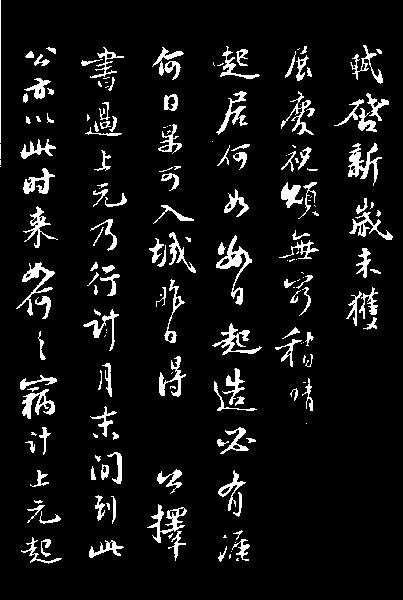 軾啓新歲未獲
展慶祝頌無窮稍晴
起居何如數日起造必有涯
何日果可入城昨日得 公擇
書過上元乃行計月末間到此
公亦以此时来如何々竊計上元起